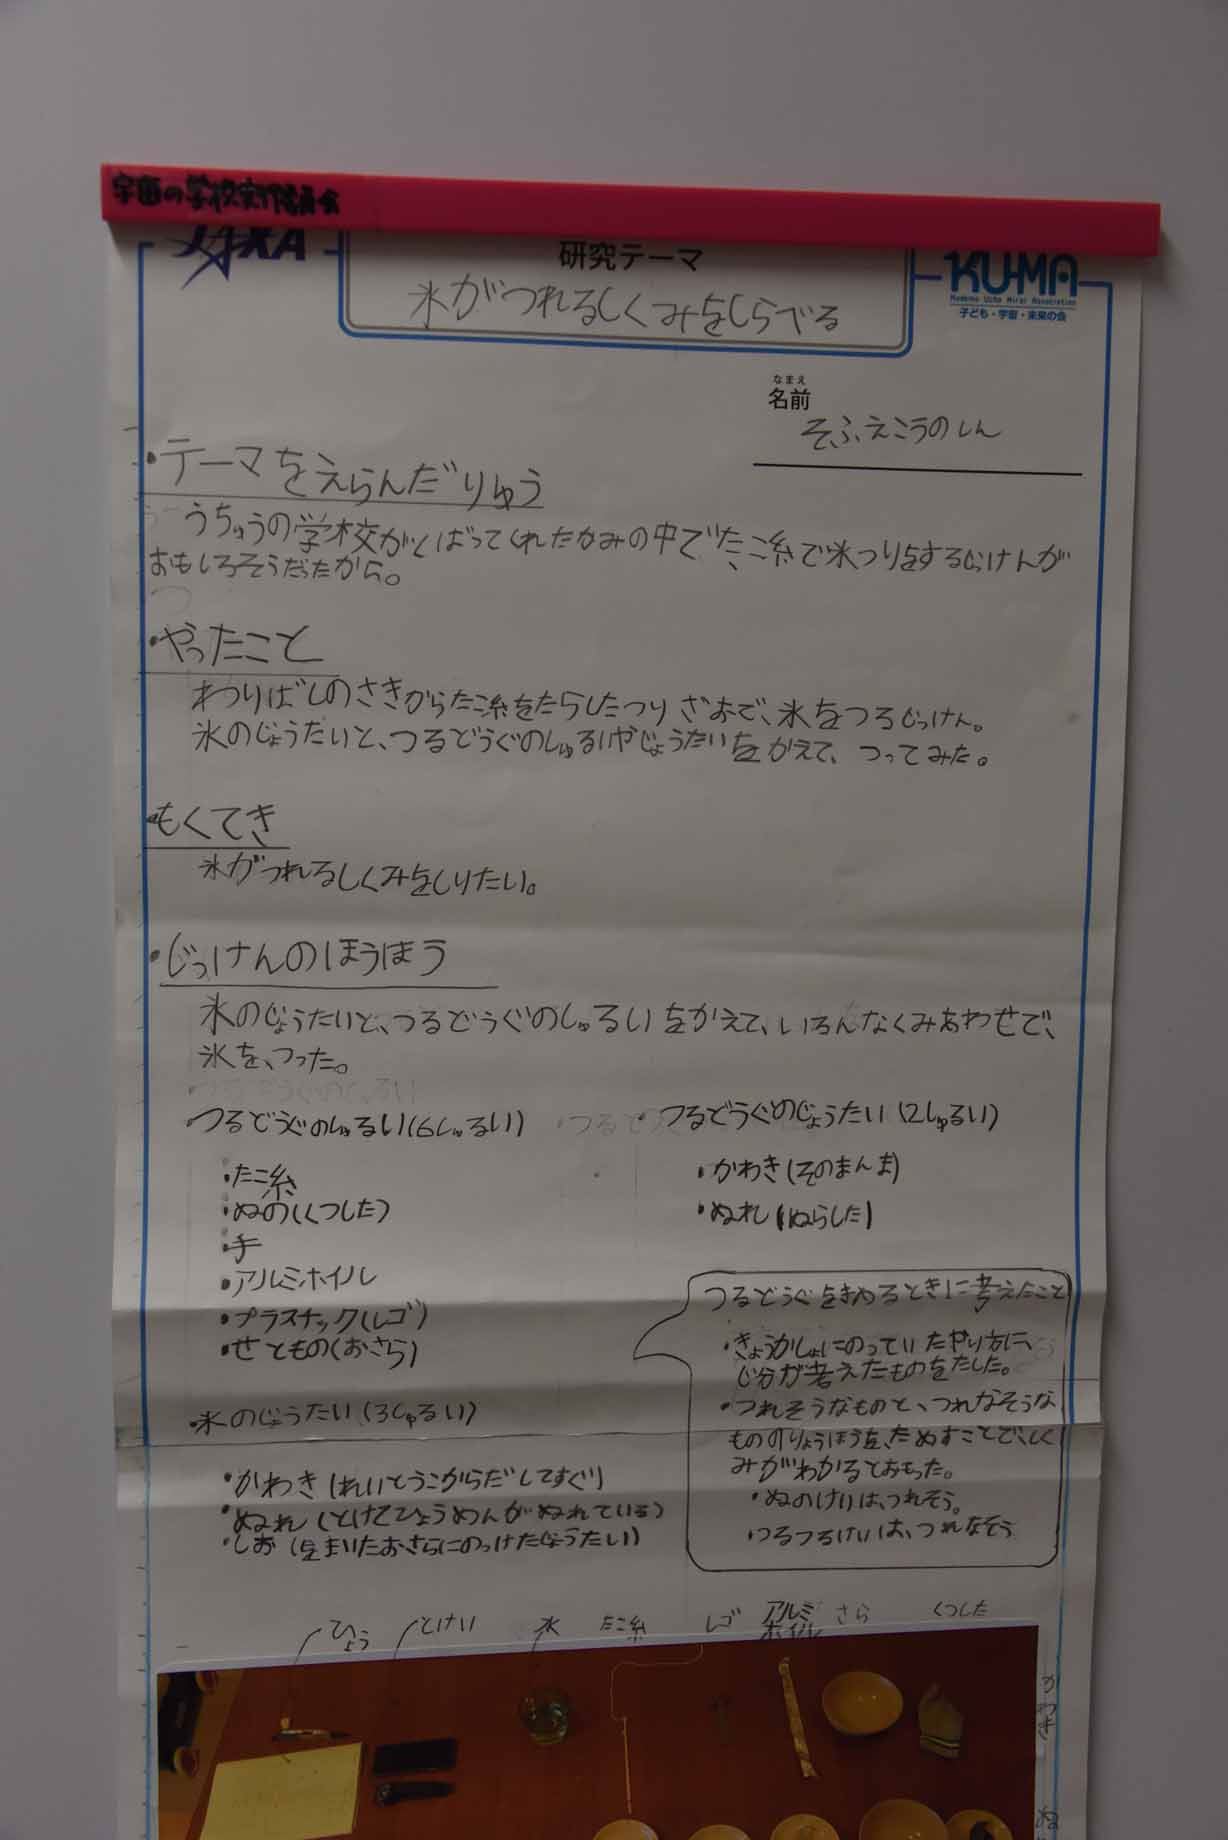 宇宙の学校実行委員会
JAXA
研究テーマ
KU-MA
子ども・宇宙・未来の会
氷がつれるしくみをしらべる
なまえ
名前
そふえこうのしん
・テーマをえらんだりゆう
うちゅうの学校がくばってくれたかみの中で、たこ糸で氷つりをするじっけんが
おもしろそうだったから。
・やったこと
わりばしのさきからたこ糸をたらしたつりざおで、氷をつるじっけん。
氷のじょうたいと、つるどうぐのしゅるいやじょうたいをかえて、つってみた。
・もくてき
氷がつれるしくみをしりたい。
・じっけんのほうほう
氷のじょうたいと、つるどうぐのしゅるいをかえて、いろんなくみあわせで、
氷を、つった。
・つるどうぐのしゅるい(6しゅるい)
・たこ糸
・ぬの(くつした)
・手
・アルミホイル
・プラスチック(レゴ)
・せともの(おさら)
・つるどうぐのじょうたい(2しゅるい)
・かわき(そのまんま)
・ぬれ(ぬらした)
つるどうぐをきめるときに考えたこと
・きょうかしょにのっていたやり方に、
じ分が考えたものをたした。
・つれそうなものと、つれなそうな
もののりょうほうを、ためすことで、しく
みがわかるとおもった。
・ぬのけいは、つれそう。
・つるつるけいは、つれなそう
・氷のじょうたい(3しゅるい)
・かわき(れいとうこからだしてすぐ)
・ぬれ(とけてひょうめんがぬれている)
・しお(をまいたおさらにのっけたじょうたい)
ひょう
とけい
水
たこ糸
レゴ
アルミ
ホイル
さら
くつした
かわき